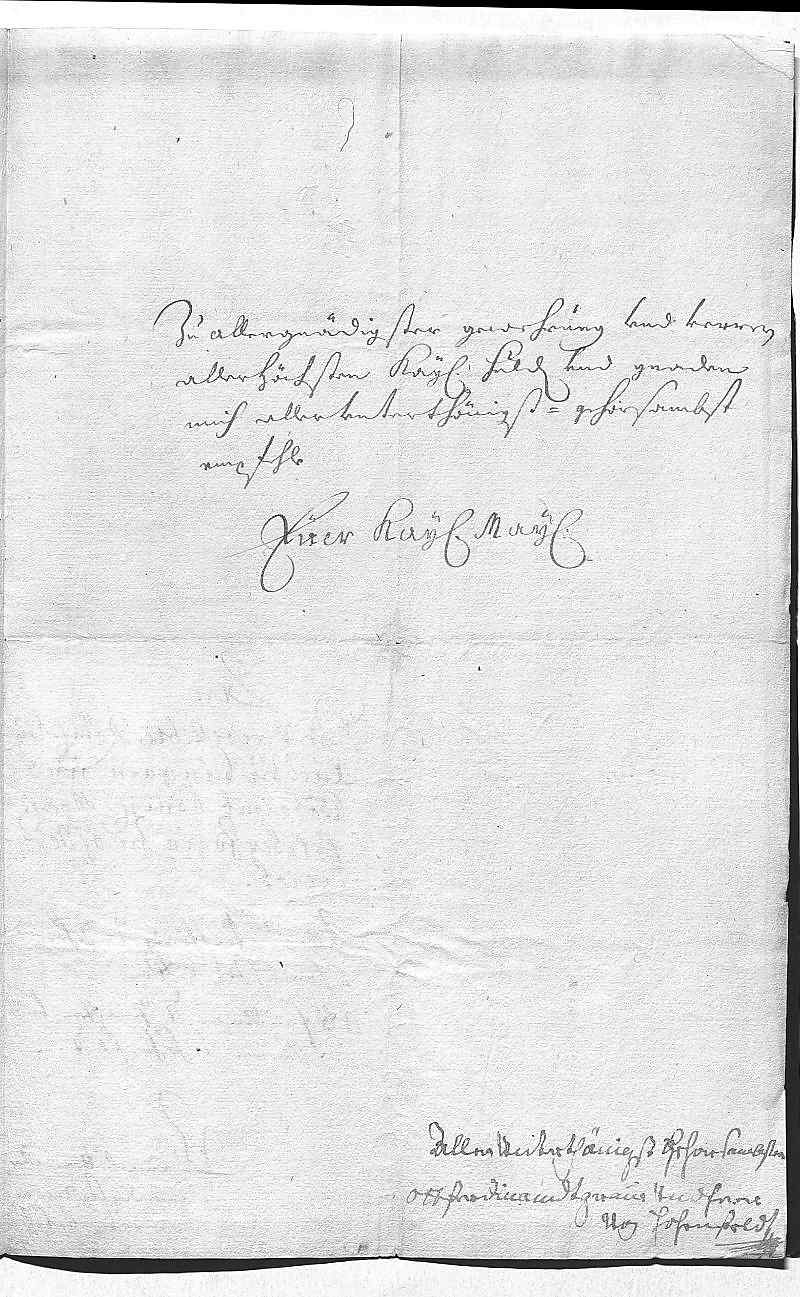 Zu allergnädigster gewehrung vnd derren
allerhöchsten Kayl: huld vnd gnaden
mich allervnterthönigst = gehorsambst
empfehle
Euer Kayl. Mayl:
Aller Unterthänigst Gehorsambster
Ott ferdinandt graue Und herr
Von Hohenfeldt